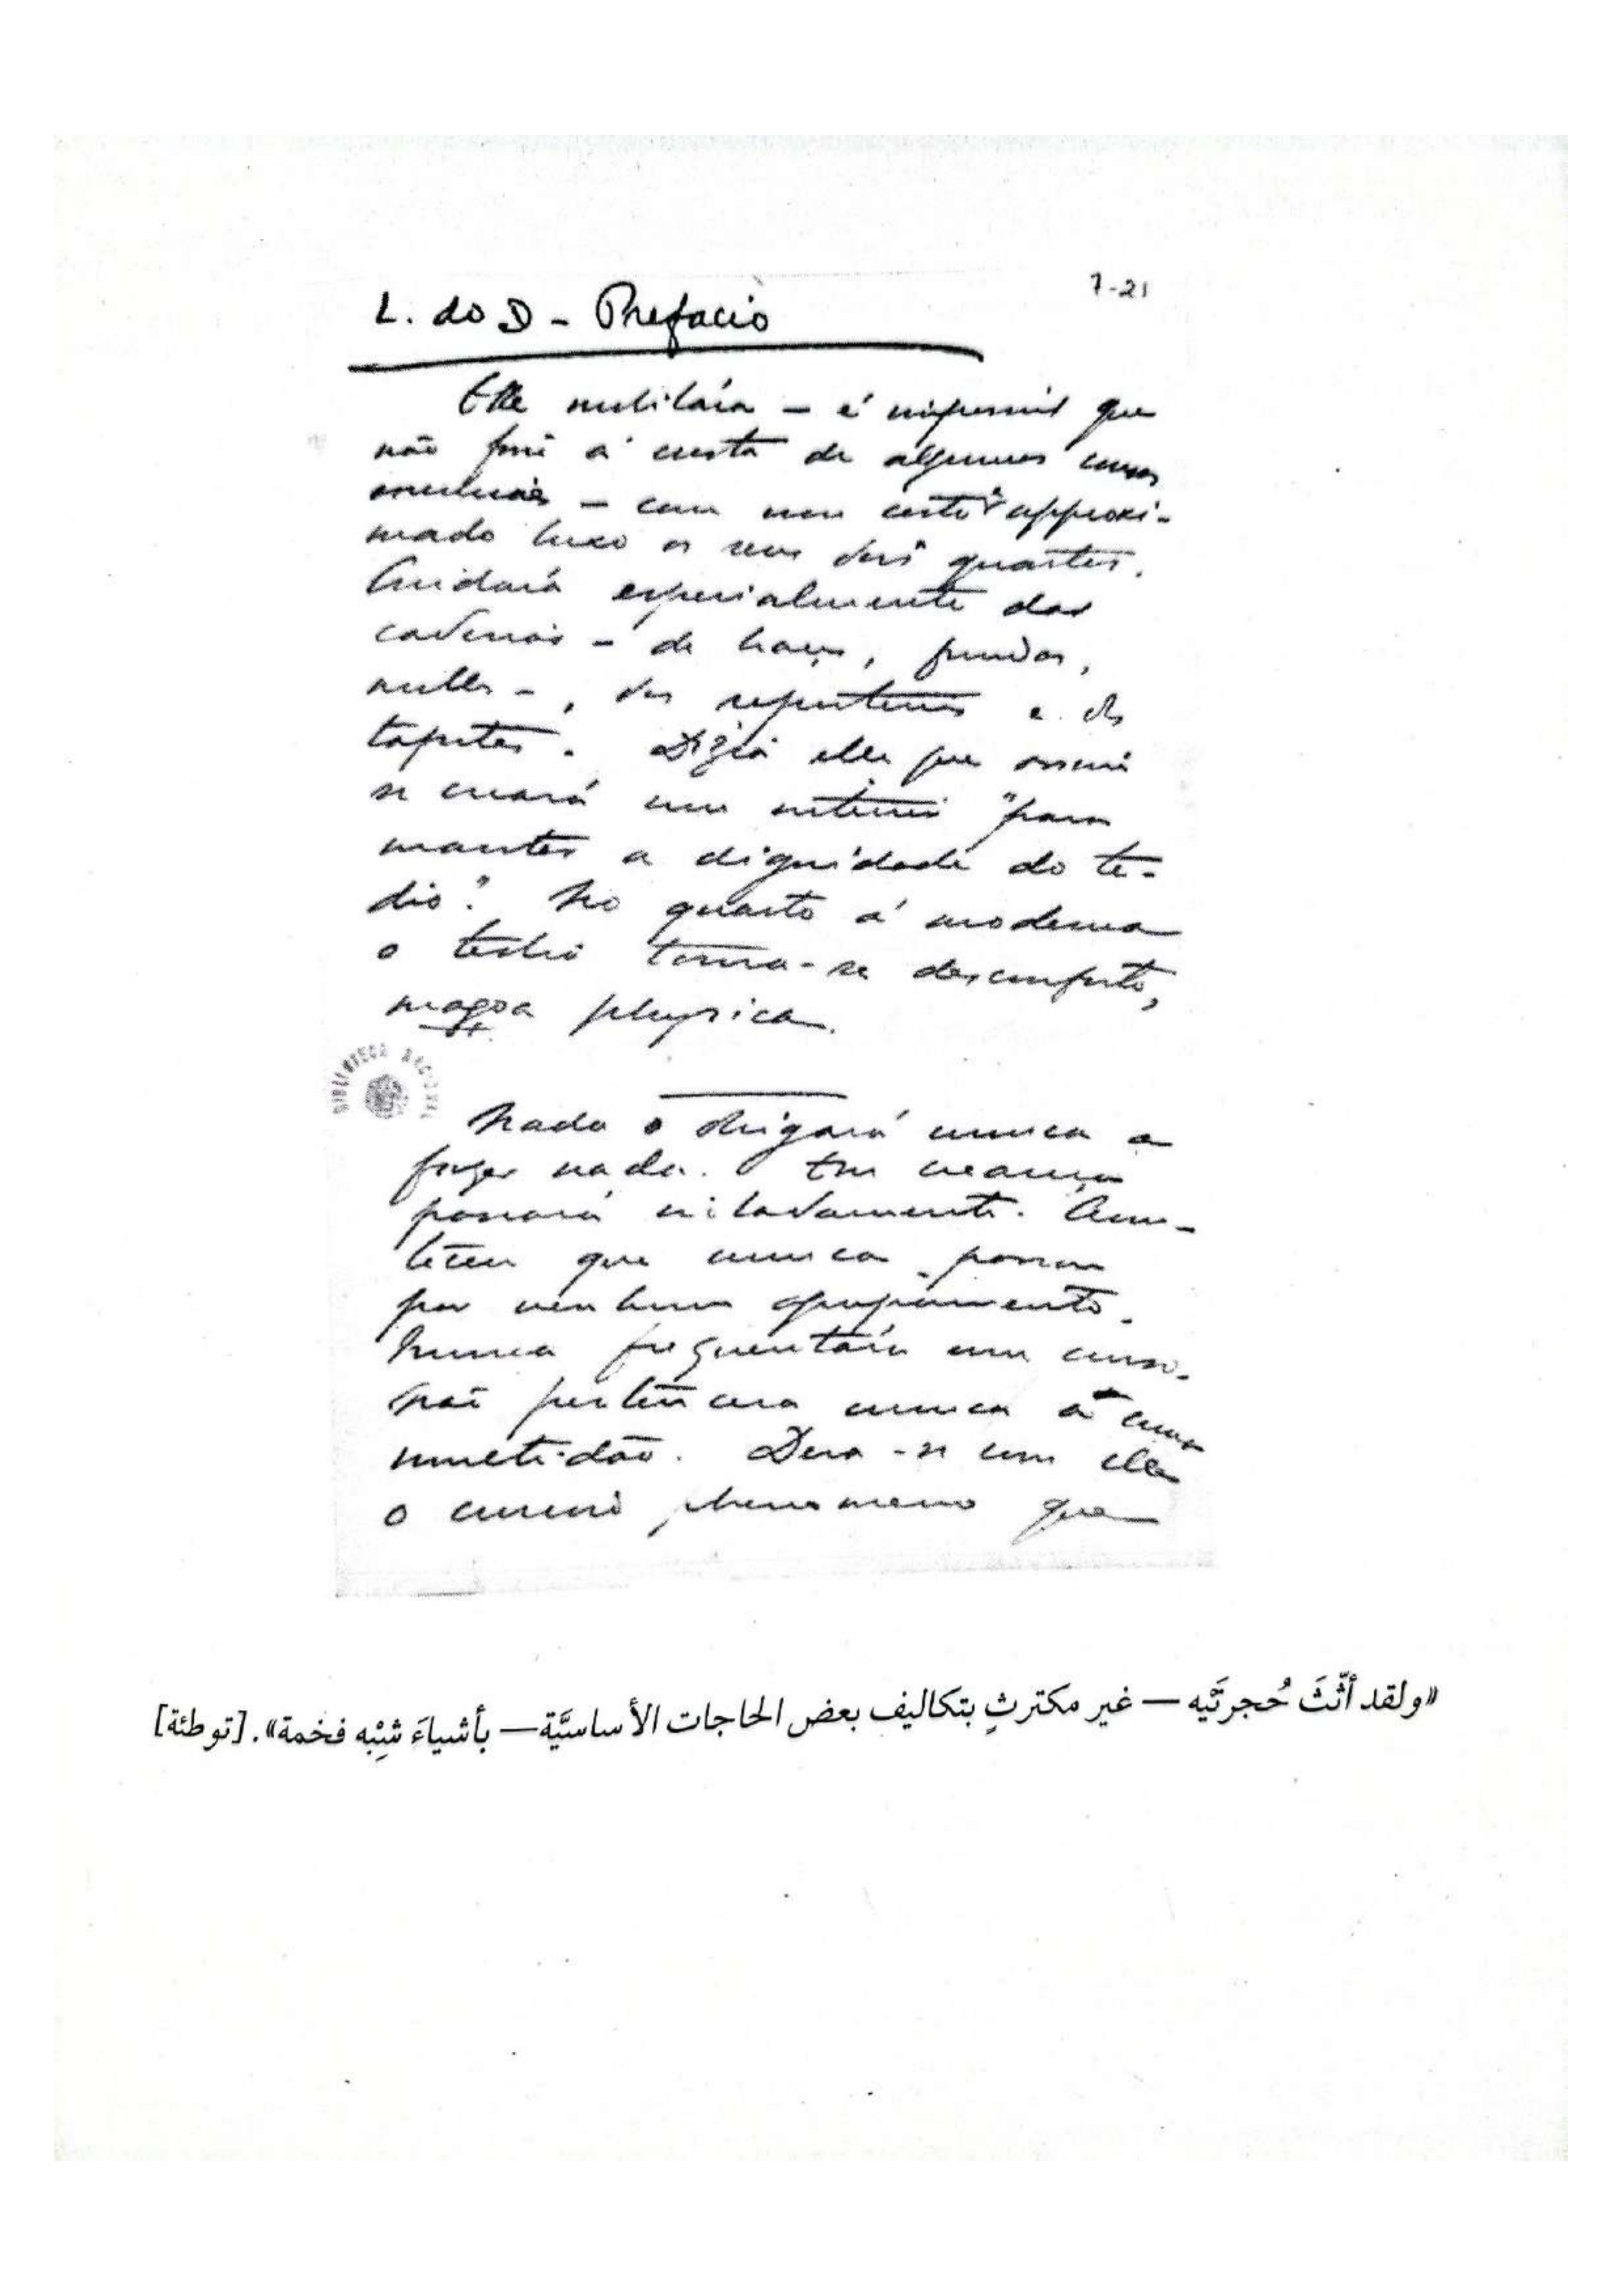 7-21
L. do D - Prefacio
Elle mobilára – é impossivel que
não fosse á custa de algumas cousas
essenciaes – com um certo e approxi-
mado luxo os seus dois quartos.
Cuidára especialmente das
cadeiras – de braços, fundas,
molles –, dos reposteiros e dos
tapetes. Dizia elle que assim
se creára um interior "para
manter a dignidade do te-
dio". No quarto á moderna
o tedio torna-se desconforto,
magoa physica.
BIBLIOTECA NACIONAL
Nada o obrigára nunca a
fazer nada. Em creança
passára isoladamente. Acon-
teceu que nunca passou
por nenhum agrupamento.
Nunca frequentára um curso.
Não pertencera nunca a uma
multidão. Dera-se com elle
o curioso phenomeno que
«ولقد أثّثَ حُجرتَيْه — غير مكترثٍ بتكاليف بعض الحاجات الأساسيَّة — بأشياءَ شِبْه فخمة». [توطئة]